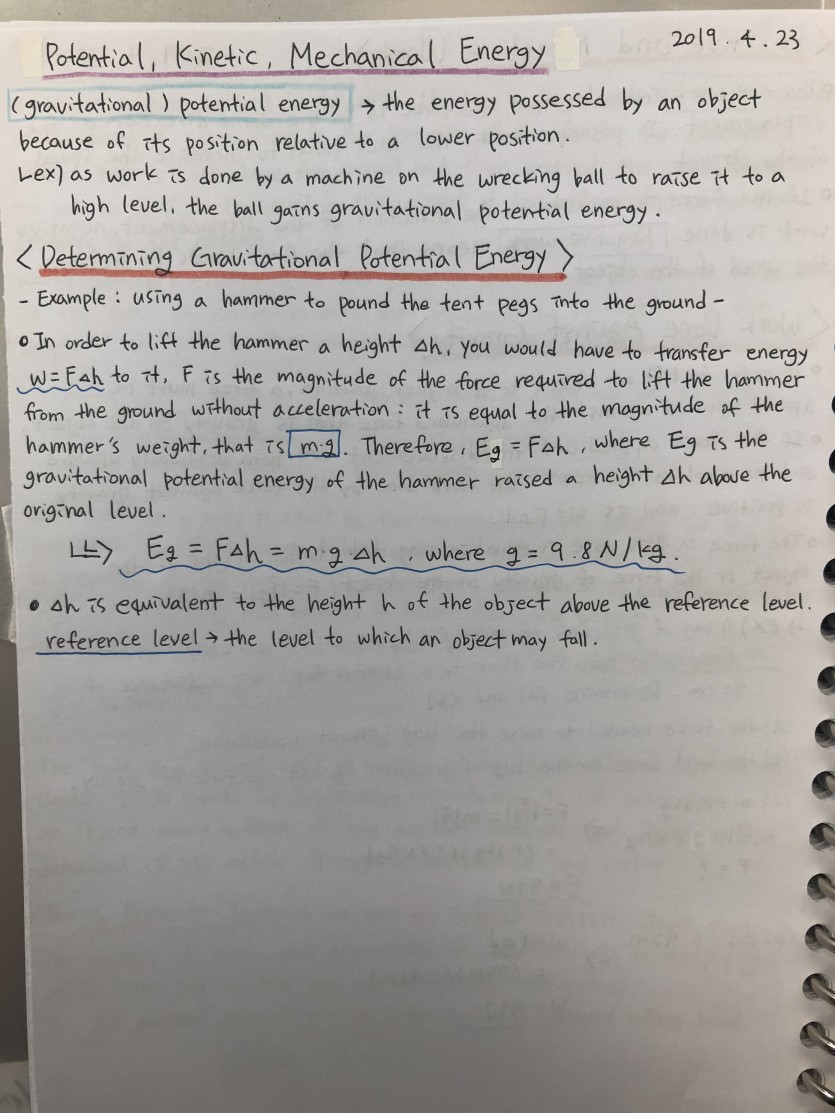 Potential, Kinetic, Mechanical Energy
2019. 4. 23
(gravitational) potential energy → the energy possessed by an object
because of its position relative to a lower position.
↳ex) as work is done by a machine on the wrecking ball to raise it to a
high level, the ball gains gravitational potential energy.
<Determining Gravitational Potential Energy>
- Example : using a hammer to pound the tent pegs into the ground -
• In order to lift the hammer a height Δh, you would have to transfer energy
W=FΔh to it, F is the magnitude of the force required to lift the hammer
from the ground without acceleration : it is equal to the magnitude of the
hammer's weight, that is m·g. Therefore, Eg = FΔh, where Eg is the
gravitational potential energy of the hammer raised a height Δh above the
original level.
↳> Eg = FΔh = m·g·Δh, where g = 9.8 N/kg.
• Δh is equivalent to the height h of the object above the reference level.
reference level → the level to which an object may fall.